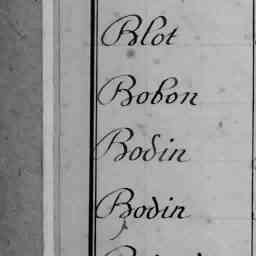 Blot
Bobon
Bodin
Bodin